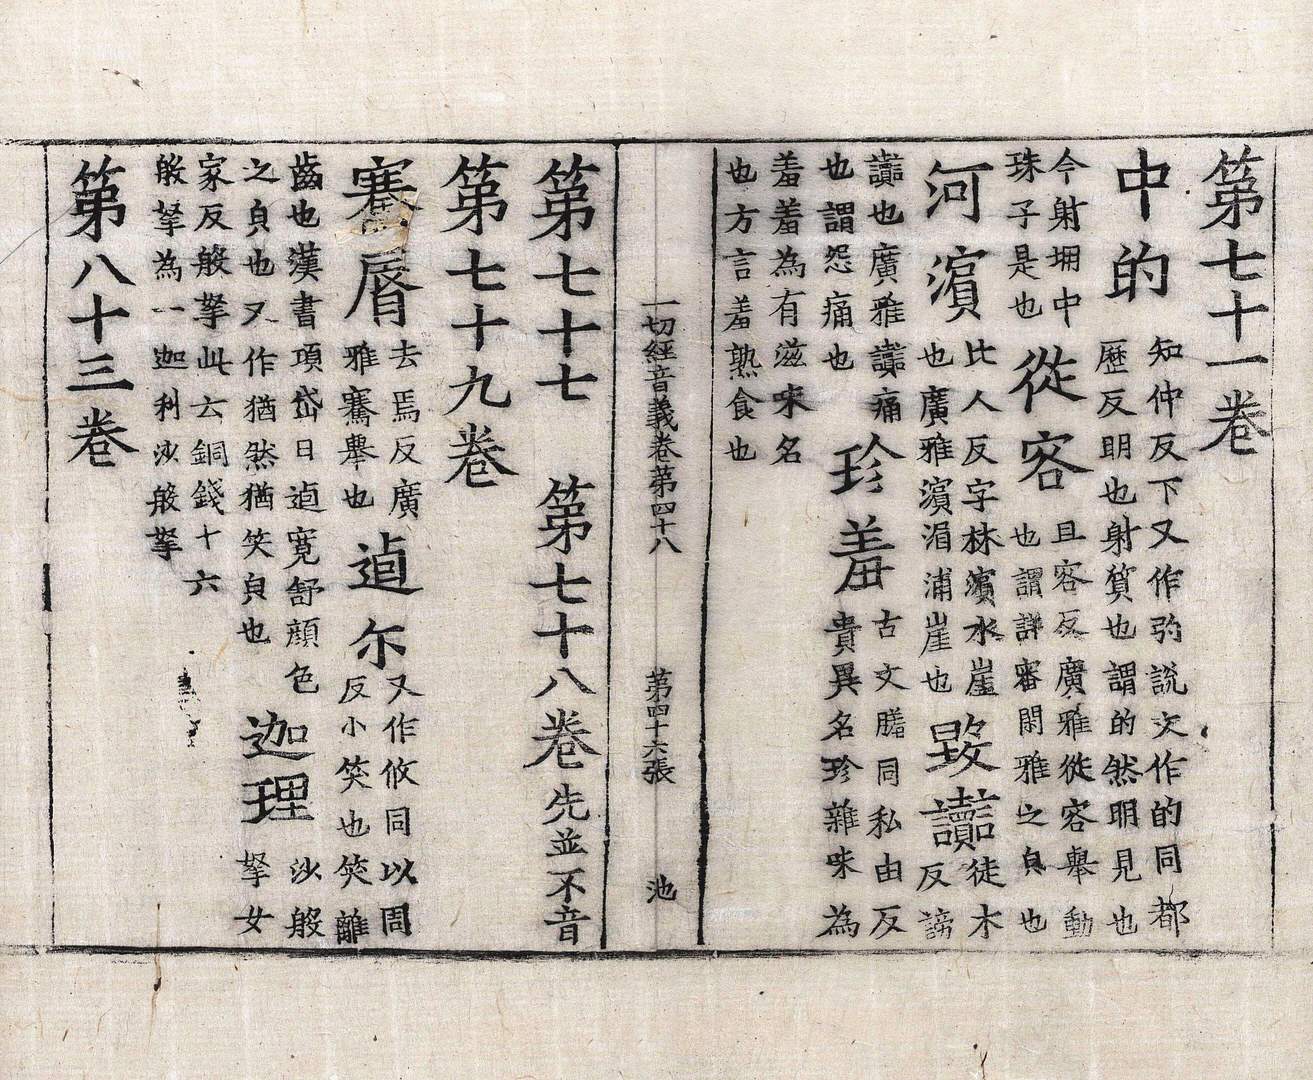 第七十一卷
中的
知仲反下又作說文作的同都
歷反明也射質也謂的然明見也
今射堋中
珠子是也
從容
且容反廣雅從容舉動
也謂詳審閑雅之皃也
河濱
比人反字林濱水崖
也廣雅濱湄浦崖也
毀讟
徒木
反謗
讟也廣雅讟痛
也謂怨痛也
珍羞
古文䐹同私由反
貴異名珍雜味為
羞羞為有滋味名
也方言羞熟食也
一切經音義卷第四十八 第四十六張 池
第七十七 第七十八卷先並不音
第七十九卷
騫脣
去焉反廣
雅騫舉也
逌尒
又作攸同以周
反小笑也笑離
齒也漢書項岱曰逌寬舒顏色
之皃也又作猶然猶笑皃也
迦理
沙般
拏女
家反般拏此云銅錢十六
般拏為一迦利沙般拏
第八十三卷